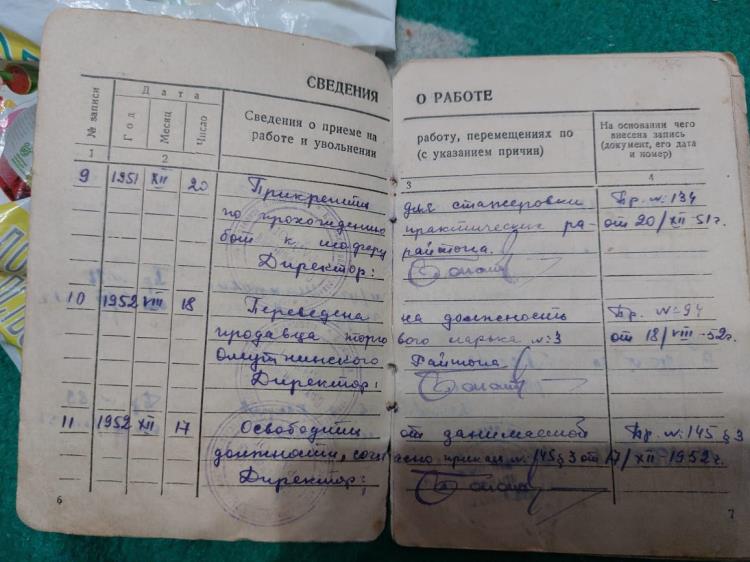 СВЕДЕНИЯ О РАБОТЕ
№ записи
Дата
Год
Месяц
Число
Сведения о приеме на работу, перемещениях по
работе и увольнении (с указанием причин)
На основании чего
внесена запись
(документ, его дата
и номер)
1 2 3 4
9 1951 XII 20 Прикрепить для стажеровки Пр. №: 134
по прохождению практических ра- от 20/XII-51г.
бот к шоферу райтопа.
Директор:
10 1952 VIII 18 Переведена на должность Пр. №94
продавца торгового ларька №3 от 18/VIII-52г.
Омутнинского Райтопа.
Директор:
11 1952 XII 17 Освободить от занимаемой Пр. №: 145 § 3
должности, согласно приказ №: 145 § 3 от 17/XII-1952г.
Директор:
6 7